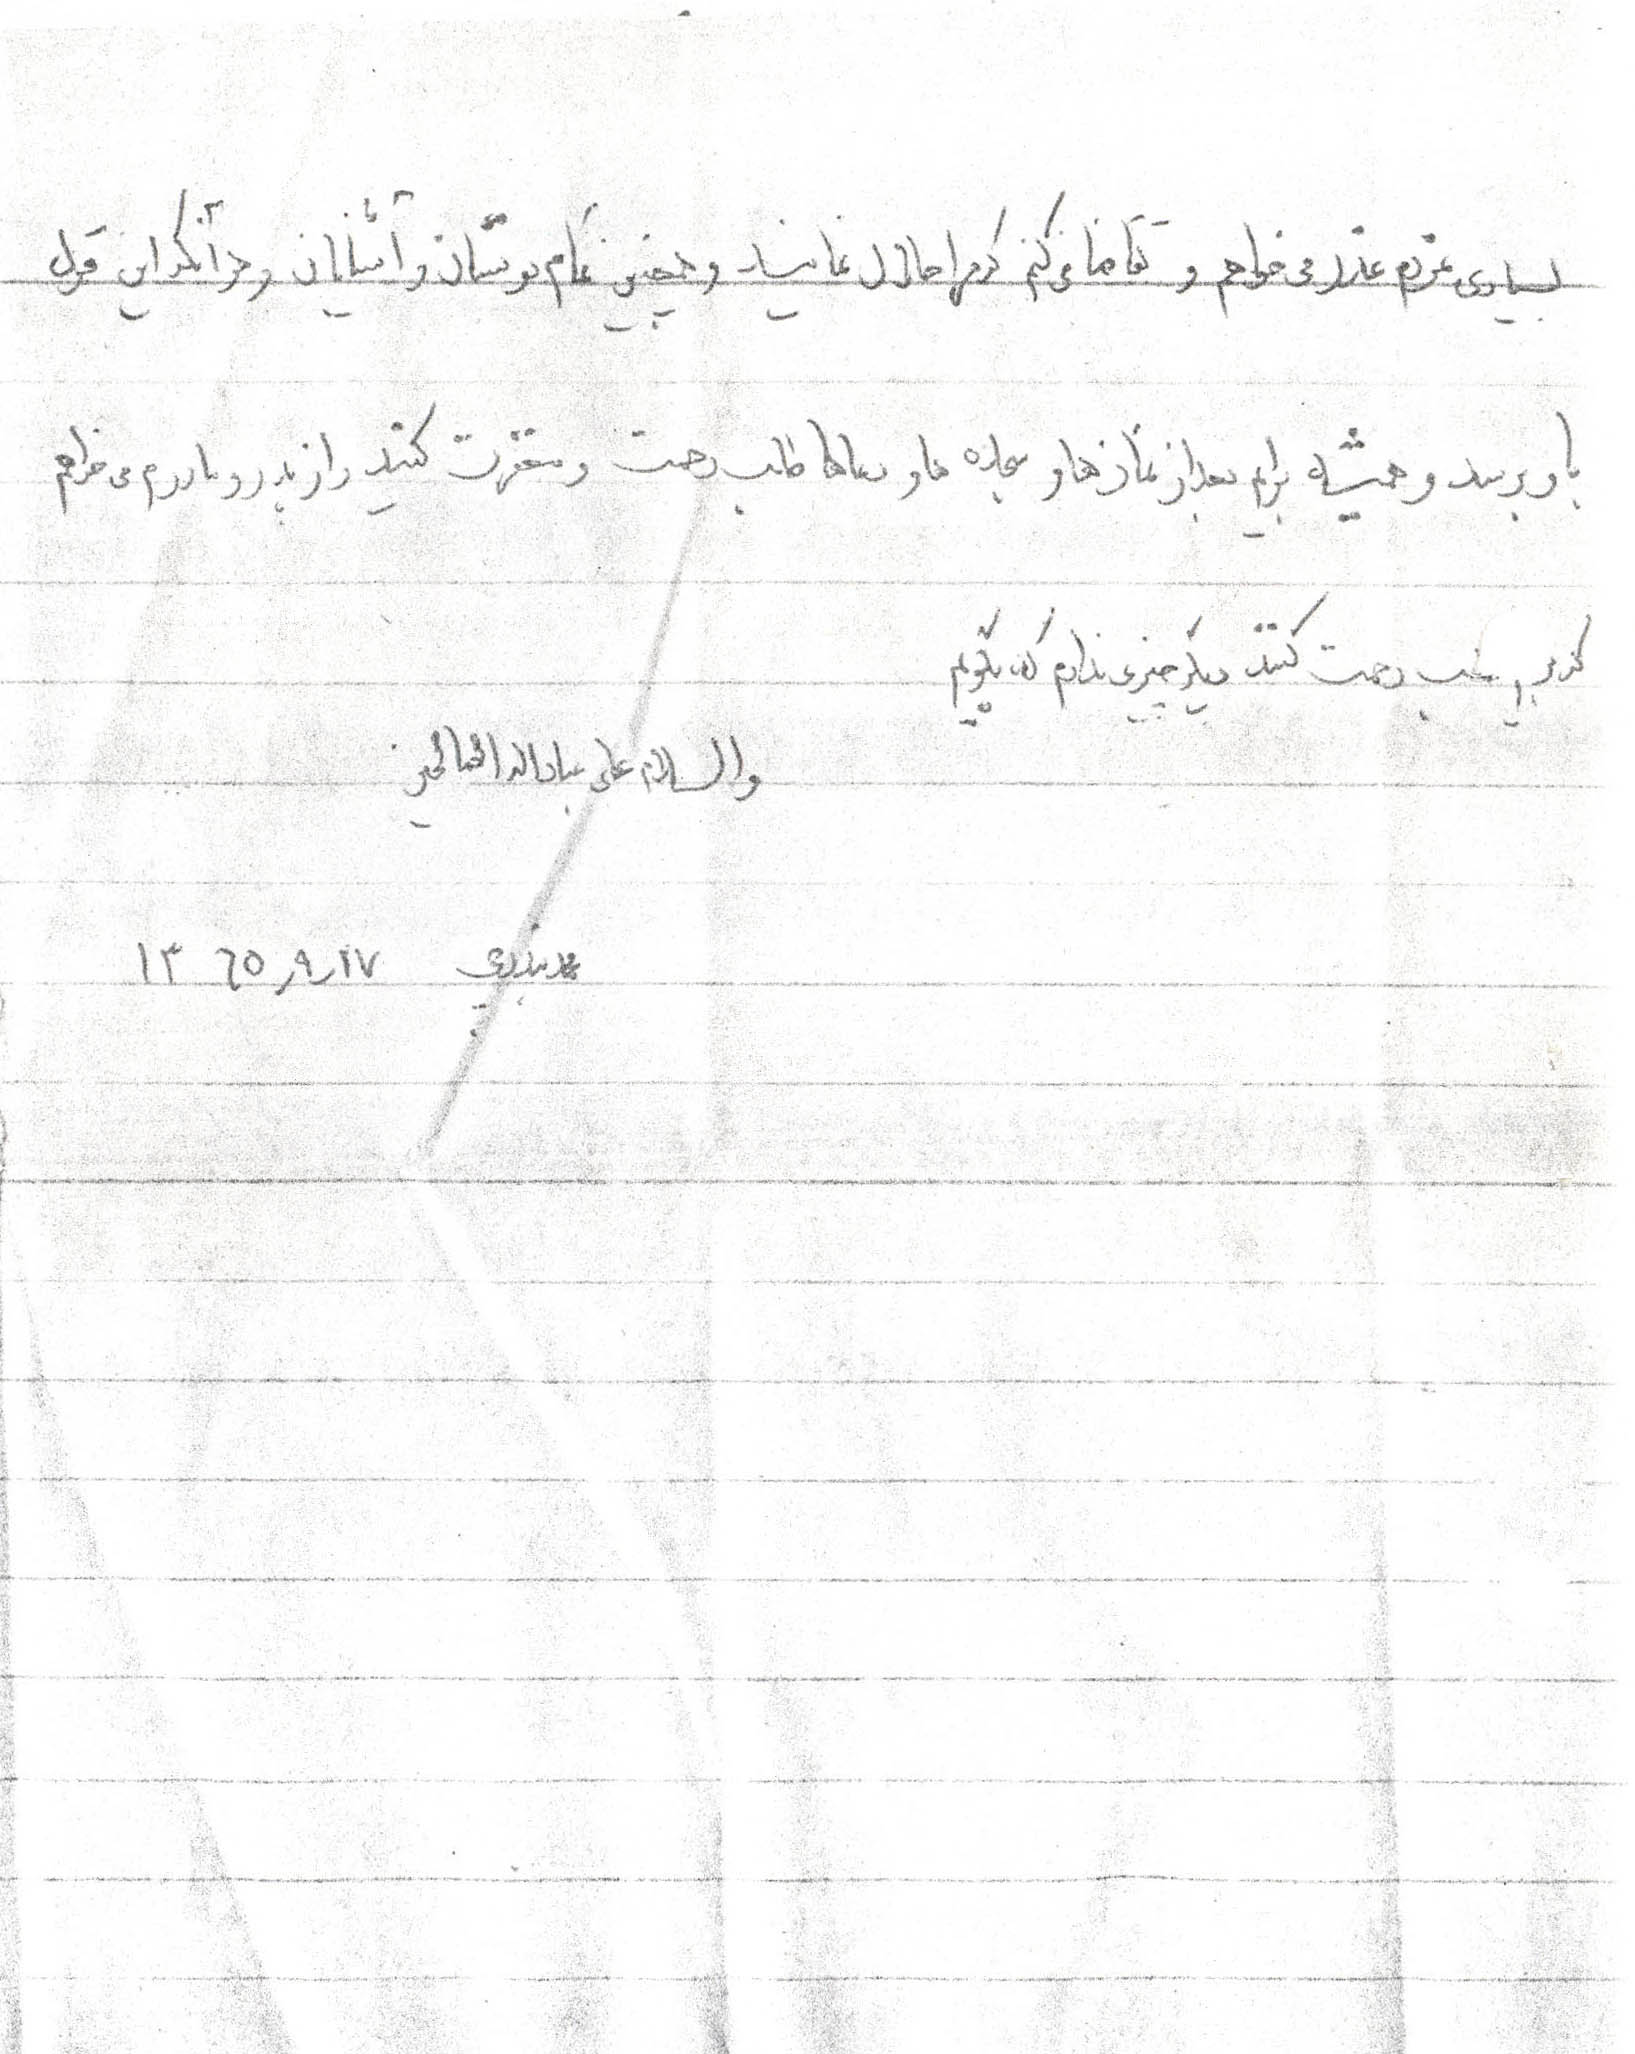 بسیاری عزیزم عذر می خواهم و تقاضا می کنم که مرا حلال نمائید و همچنین تمام دوستان و آشنایان و هر آنکه این قول
باو برسد و همیشه برایم بعد از نمازها و سجده ها و دعاها طلب رحمت و مغفرت کنید و از پدر و مادرم می خواهم
که برایم طلب رحمت کنند دیگر چیزی ندارم که بگویم
والسلام علی عبادالله الصالحین
محمد ۱۳٦٥٫۹٫۱۷